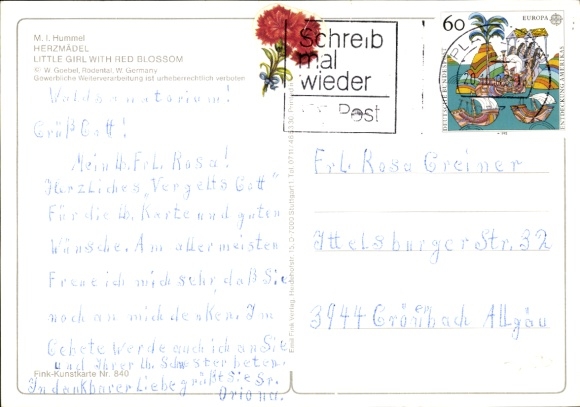 M. I. Hummel
HERZMÄDEL
LITTLE GIRL WITH RED BLOSSOM
© W. Goebel, Rödental, W. Germany
Gewerbliche Weiterverarbeitung ist urheberrechtlich verboten
Waldsanatorium!
Grüß Gott!
Mein lb. Frl. Rosa!
Herzliches "Vergelts Gott"
Für die lb. Karte und guten
Wünsche. Am allermeisten
Freue ich mich sehr, daß Sie
noch an mich denken. Im
Gebete werde auch ich an Sie
und Ihrer lb. Schwester beten.
In dankbarer Liebe grüßt Sie Sr.
Oriona.
Fink-Kunstkarte Nr. 840
Schreib
mal
wieder
Post
60
EUROPA
DEUTSCHE BUNDESPOST
ENTDECKUNG AMERIKAS
Frl. Rosa Greiner
Ittelsburger Str. 32
3944 Grönenbach Allgäu